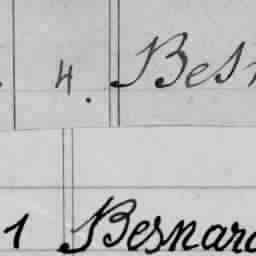 4. Besn
1 Besnard